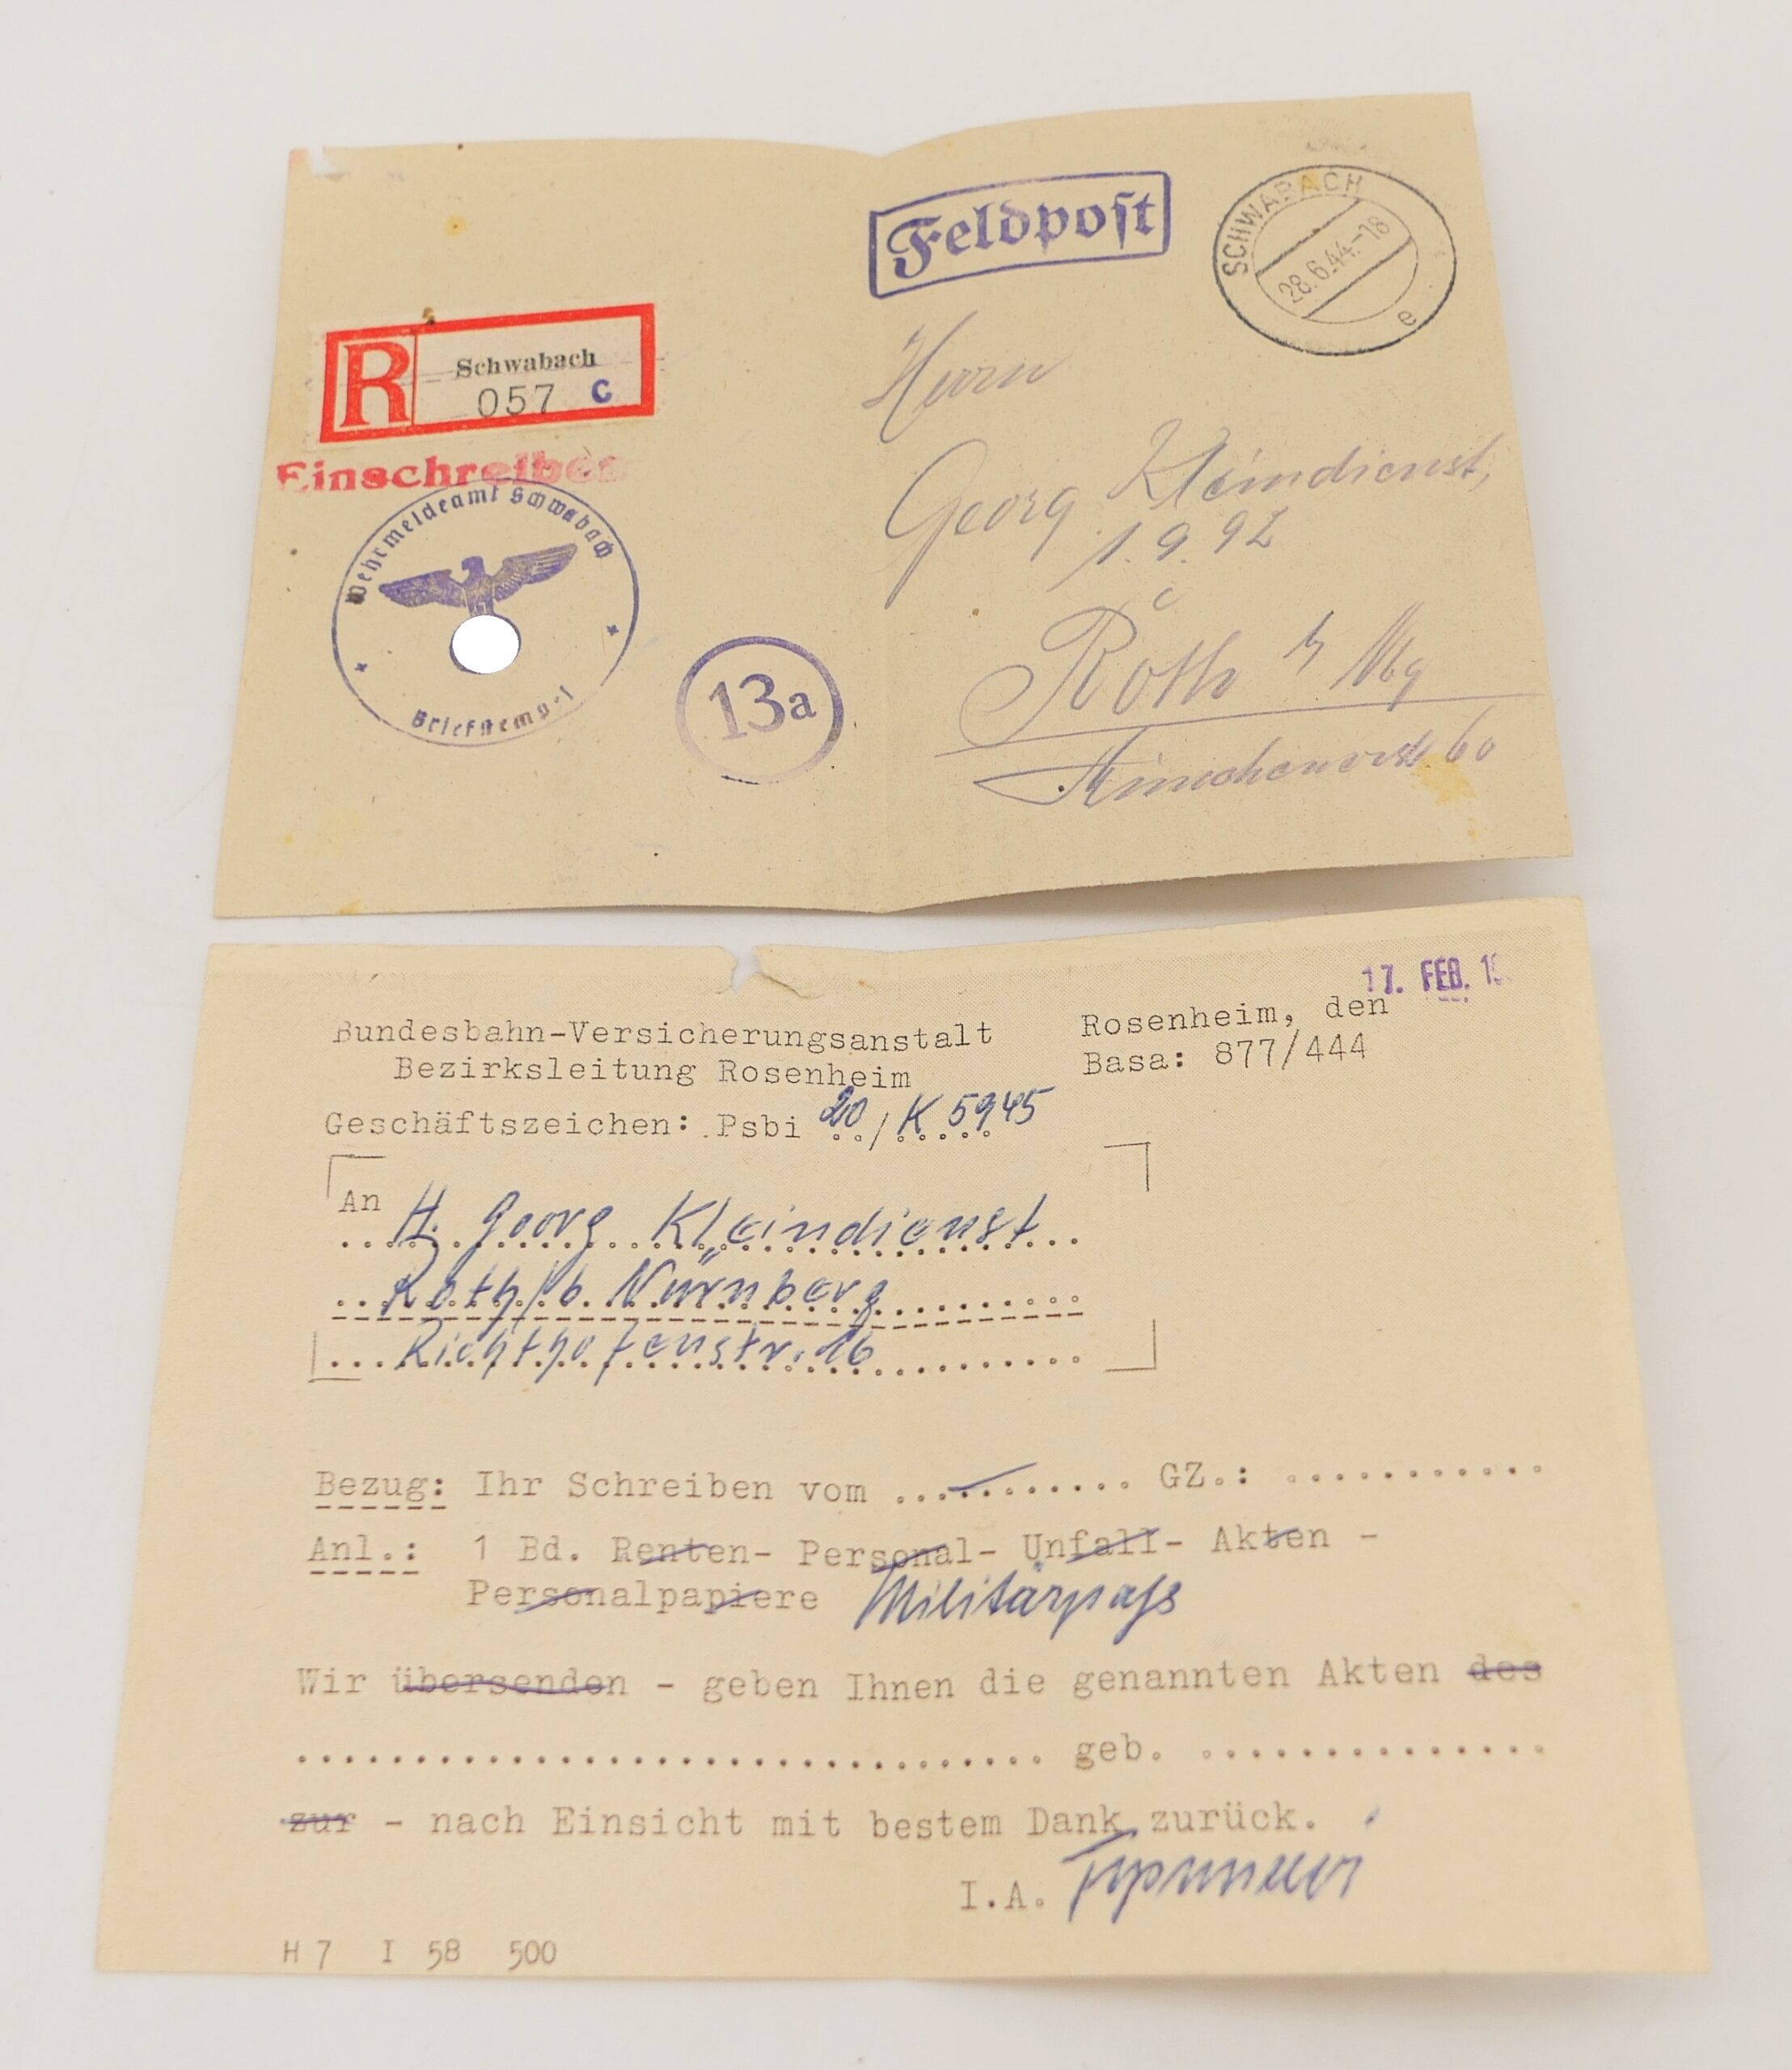 Feldpost
SCHWABACH
28.6.44.-18
e
R
Schwabach
057 c
Einschreiben
Wehrmeldeamt Schwabach
Briefstemp.
13a
Herrn
Georg Kleindienst,
1.9.92
Roth b Nbg
60
17. FEB.
Bundesbahn-Versicherungsanstalt
Bezirksleitung Rosenheim
Rosenheim, den
Basa: 877/444
Geschäftszeichen: Psbi 20/K 5945
An H. Georg Kleindienst
Roth/b. Nürnberg
Richthofenstr. 16
Bezug: Ihr Schreiben vom .......... GZ.: ...........
Anl.: 1 Bd. Renten- Personal- Unfall- Akten -
Personalpapiere Militärpaß
Wir übersenden - geben Ihnen die genannten Akten des
................................ geb. ...............
zur - nach Einsicht mit bestem Dank zurück.
I.A.
H 7 I 58 500